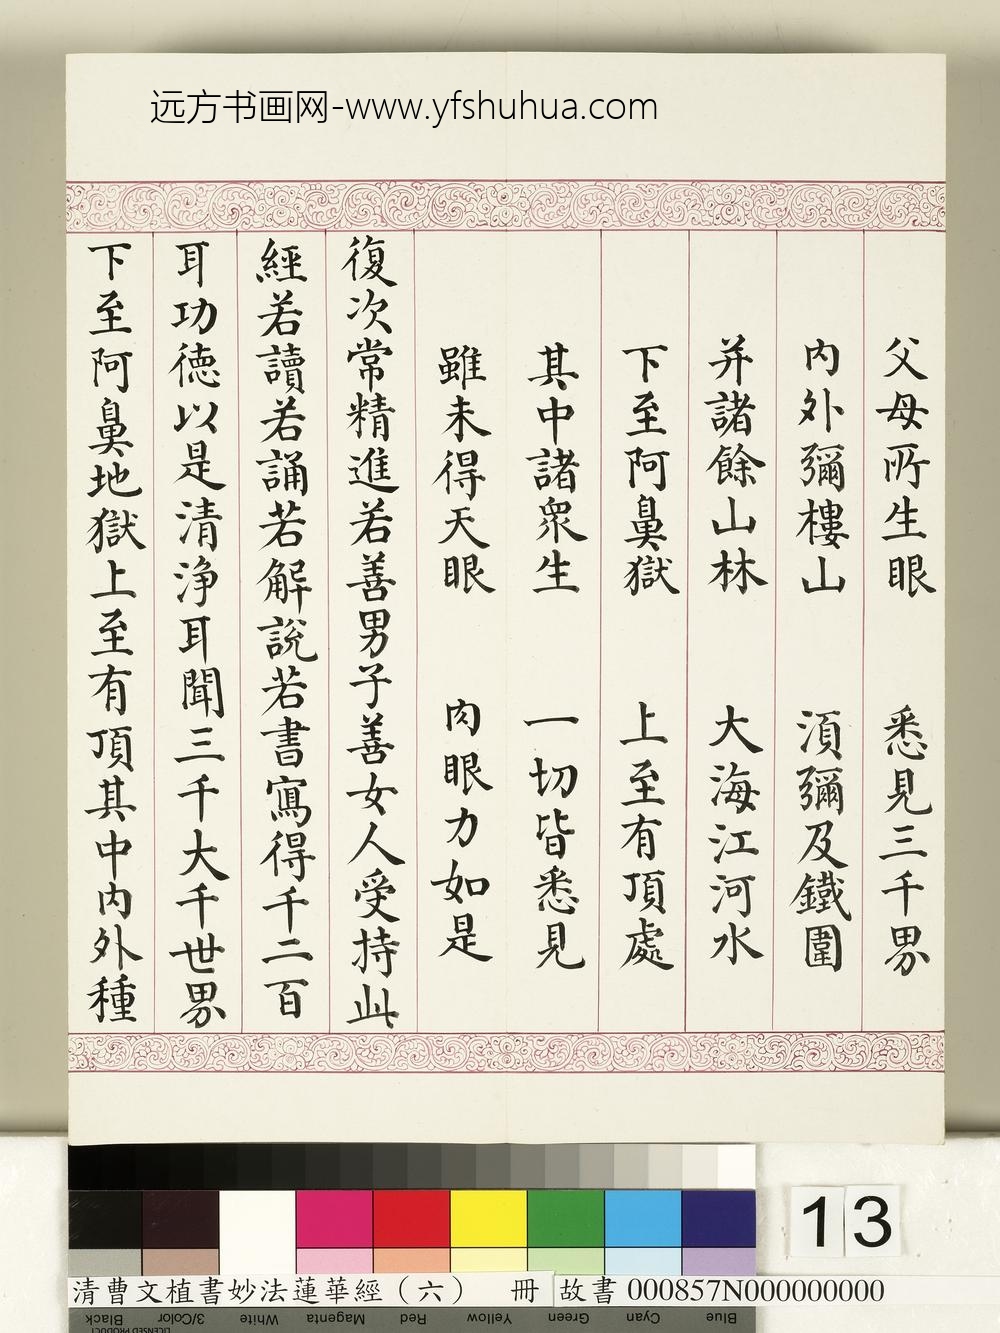 远方书画网-www.yfshuhua.com
父母所生眼 悉見三千界
内外彌樓山 須彌及鐵圍
并諸餘山林 大海江河水
下至阿鼻獄 上至有頂處
其中諸衆生 一切皆悉見
雖未得天眼 肉眼力如是
復次常精進若善男子善女人受持此
經若讀若誦若解說若書寫得千二百
耳功德以是清淨耳聞三千大千世界
下至阿鼻地獄上至有頂其中内外種
13
清曹文植書妙法蓮華經（六） 冊 故書 000857N000000000
Black 3/Color White Magenta Red Yellow Green Cyan Blue
LICENSED PRODUCT